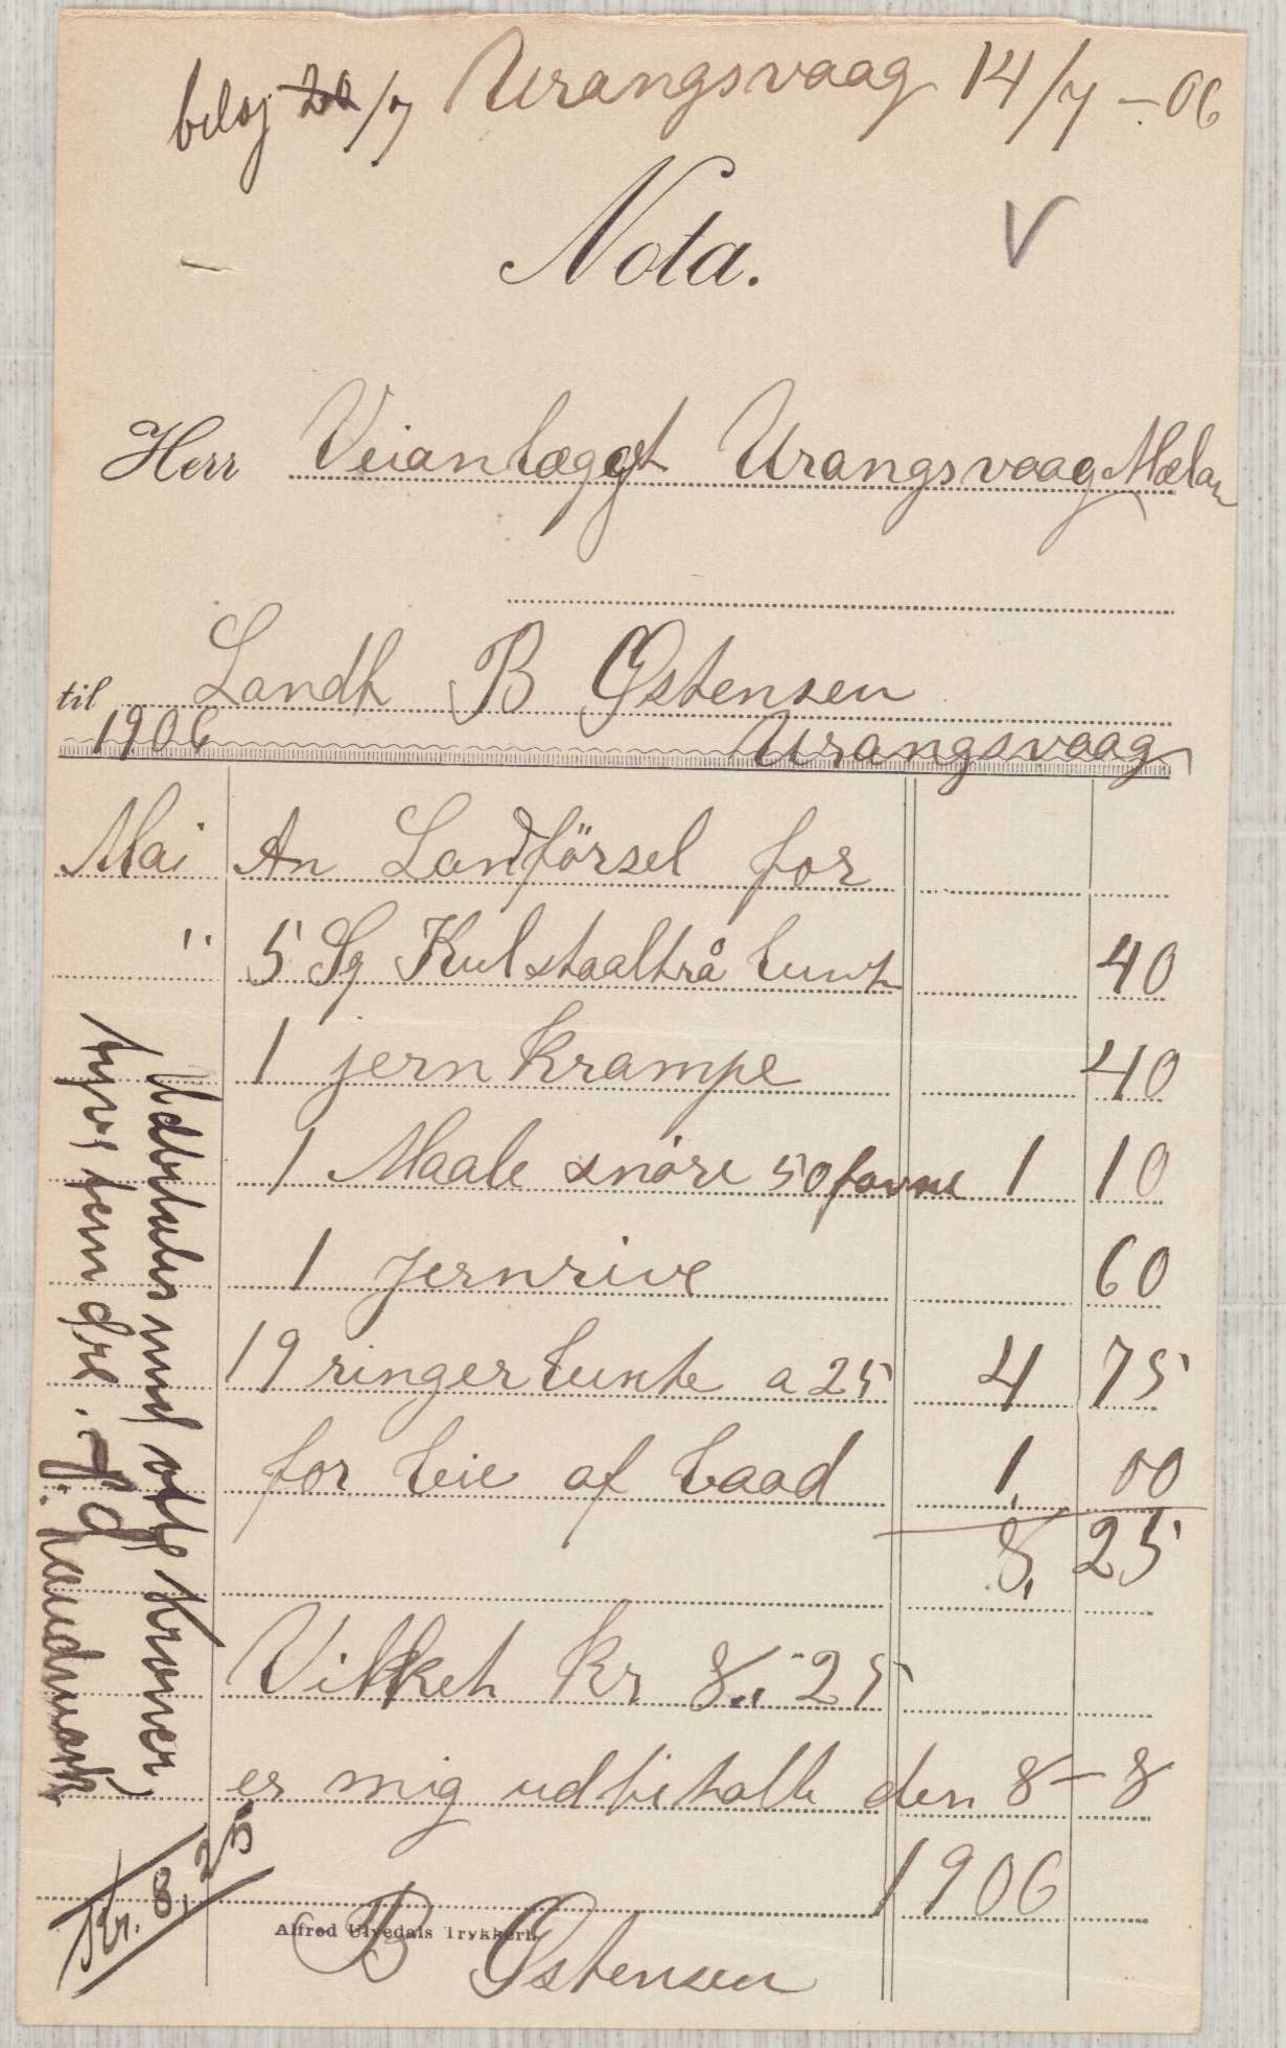 bilag 20/7 Urangsvaag 14/7 - 06
Nota.
V
Herr Veianlægget Urangsvaag Mælan
til Landh B Østensen
1906 Urangsvaag
Mai An Landförsel for
" 5 Sg Kul staaltrå lunt 40
1 jern krampe 40
1 Maale snöre 50 favne 1 10
1 jernrive 60
19 ringer lunte a 25 4 75
for leie af baad 1, 00
8, 25
Vilket kr 8,, 25
er mig udbetalt den 8 - 8
1906
B Østensen
Alfred Ulvedals Trykkeri
Udbetales med otte Kroner,
tyve fem øre.
Kr. 8,25